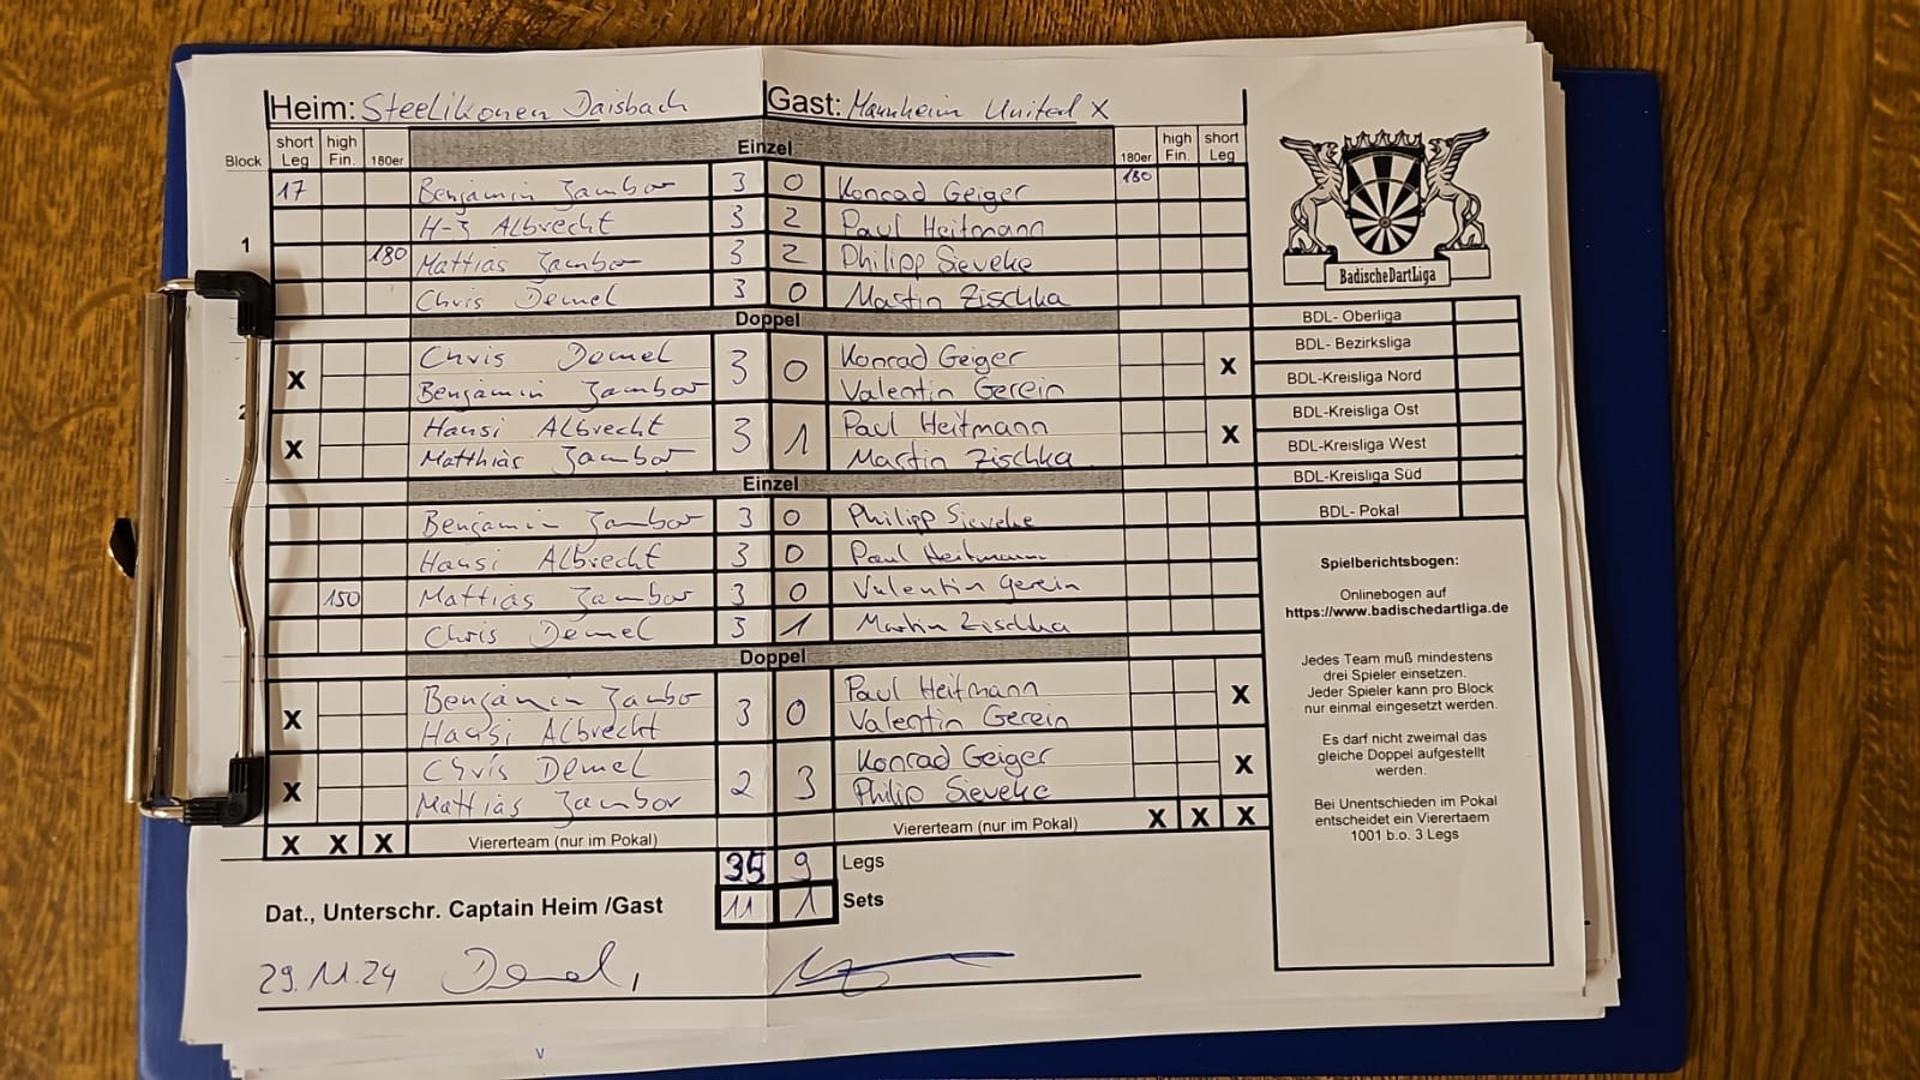 Heim: Steelikonen Daisbach Gast: Mannheim United X
Block short Leg high Fin. 180er Einzel 180er high Fin. short Leg
17 Benjamin Zambor 3 0 Konrad Geiger 180
H-J Albrecht 3 2 Paul Heitmann
1
180 Mattias Zambor 3 2 Philipp Sieveke
Chris Demel 3 0 Martin Zischka
Doppel
X Chris Demel 3 0 Konrad Geiger X
Benjamin Zambor Valentin Gerein
2
X Hansi Albrecht 3 1 Paul Heitmann X
Matthias Zambor Martin Zischka
Einzel
Benjamin Zambor 3 0 Philipp Sieveke
Hansi Albrecht 3 0 Paul Heitmann
150 Mattias Zambor 3 0 Valentin Gerein
Chris Demel 3 1 Martin Zischka
Doppel
X Benjamin Zambo 3 0 Paul Heitmann X
Hansi Albrecht Valentin Gerein
X Chris Demel 2 3 Konrad Geiger X
Mattias Zambor Philip Sieveke
X X X Viererteam (nur im Pokal) Viererteam (nur im Pokal) X X X
35 9 Legs
Dat., Unterschr. Captain Heim /Gast 11 1 Sets
29.11.24 Demel
BadischeDartLiga
BDL- Oberliga
BDL- Bezirksliga
BDL-Kreisliga Nord
BDL-Kreisliga Ost
BDL-Kreisliga West
BDL-Kreisliga Süd
BDL- Pokal
Spielberichtsbogen:
Onlinebogen auf
https://www.badischedartliga.de
Jedes Team muß mindestens
drei Spieler einsetzen.
Jeder Spieler kann pro Block
nur einmal eingesetzt werden.
Es darf nicht zweimal das
gleiche Doppel aufgestellt
werden.
Bei Unentschieden im Pokal
entscheidet ein Vierertaem
1001 b.o. 3 Legs